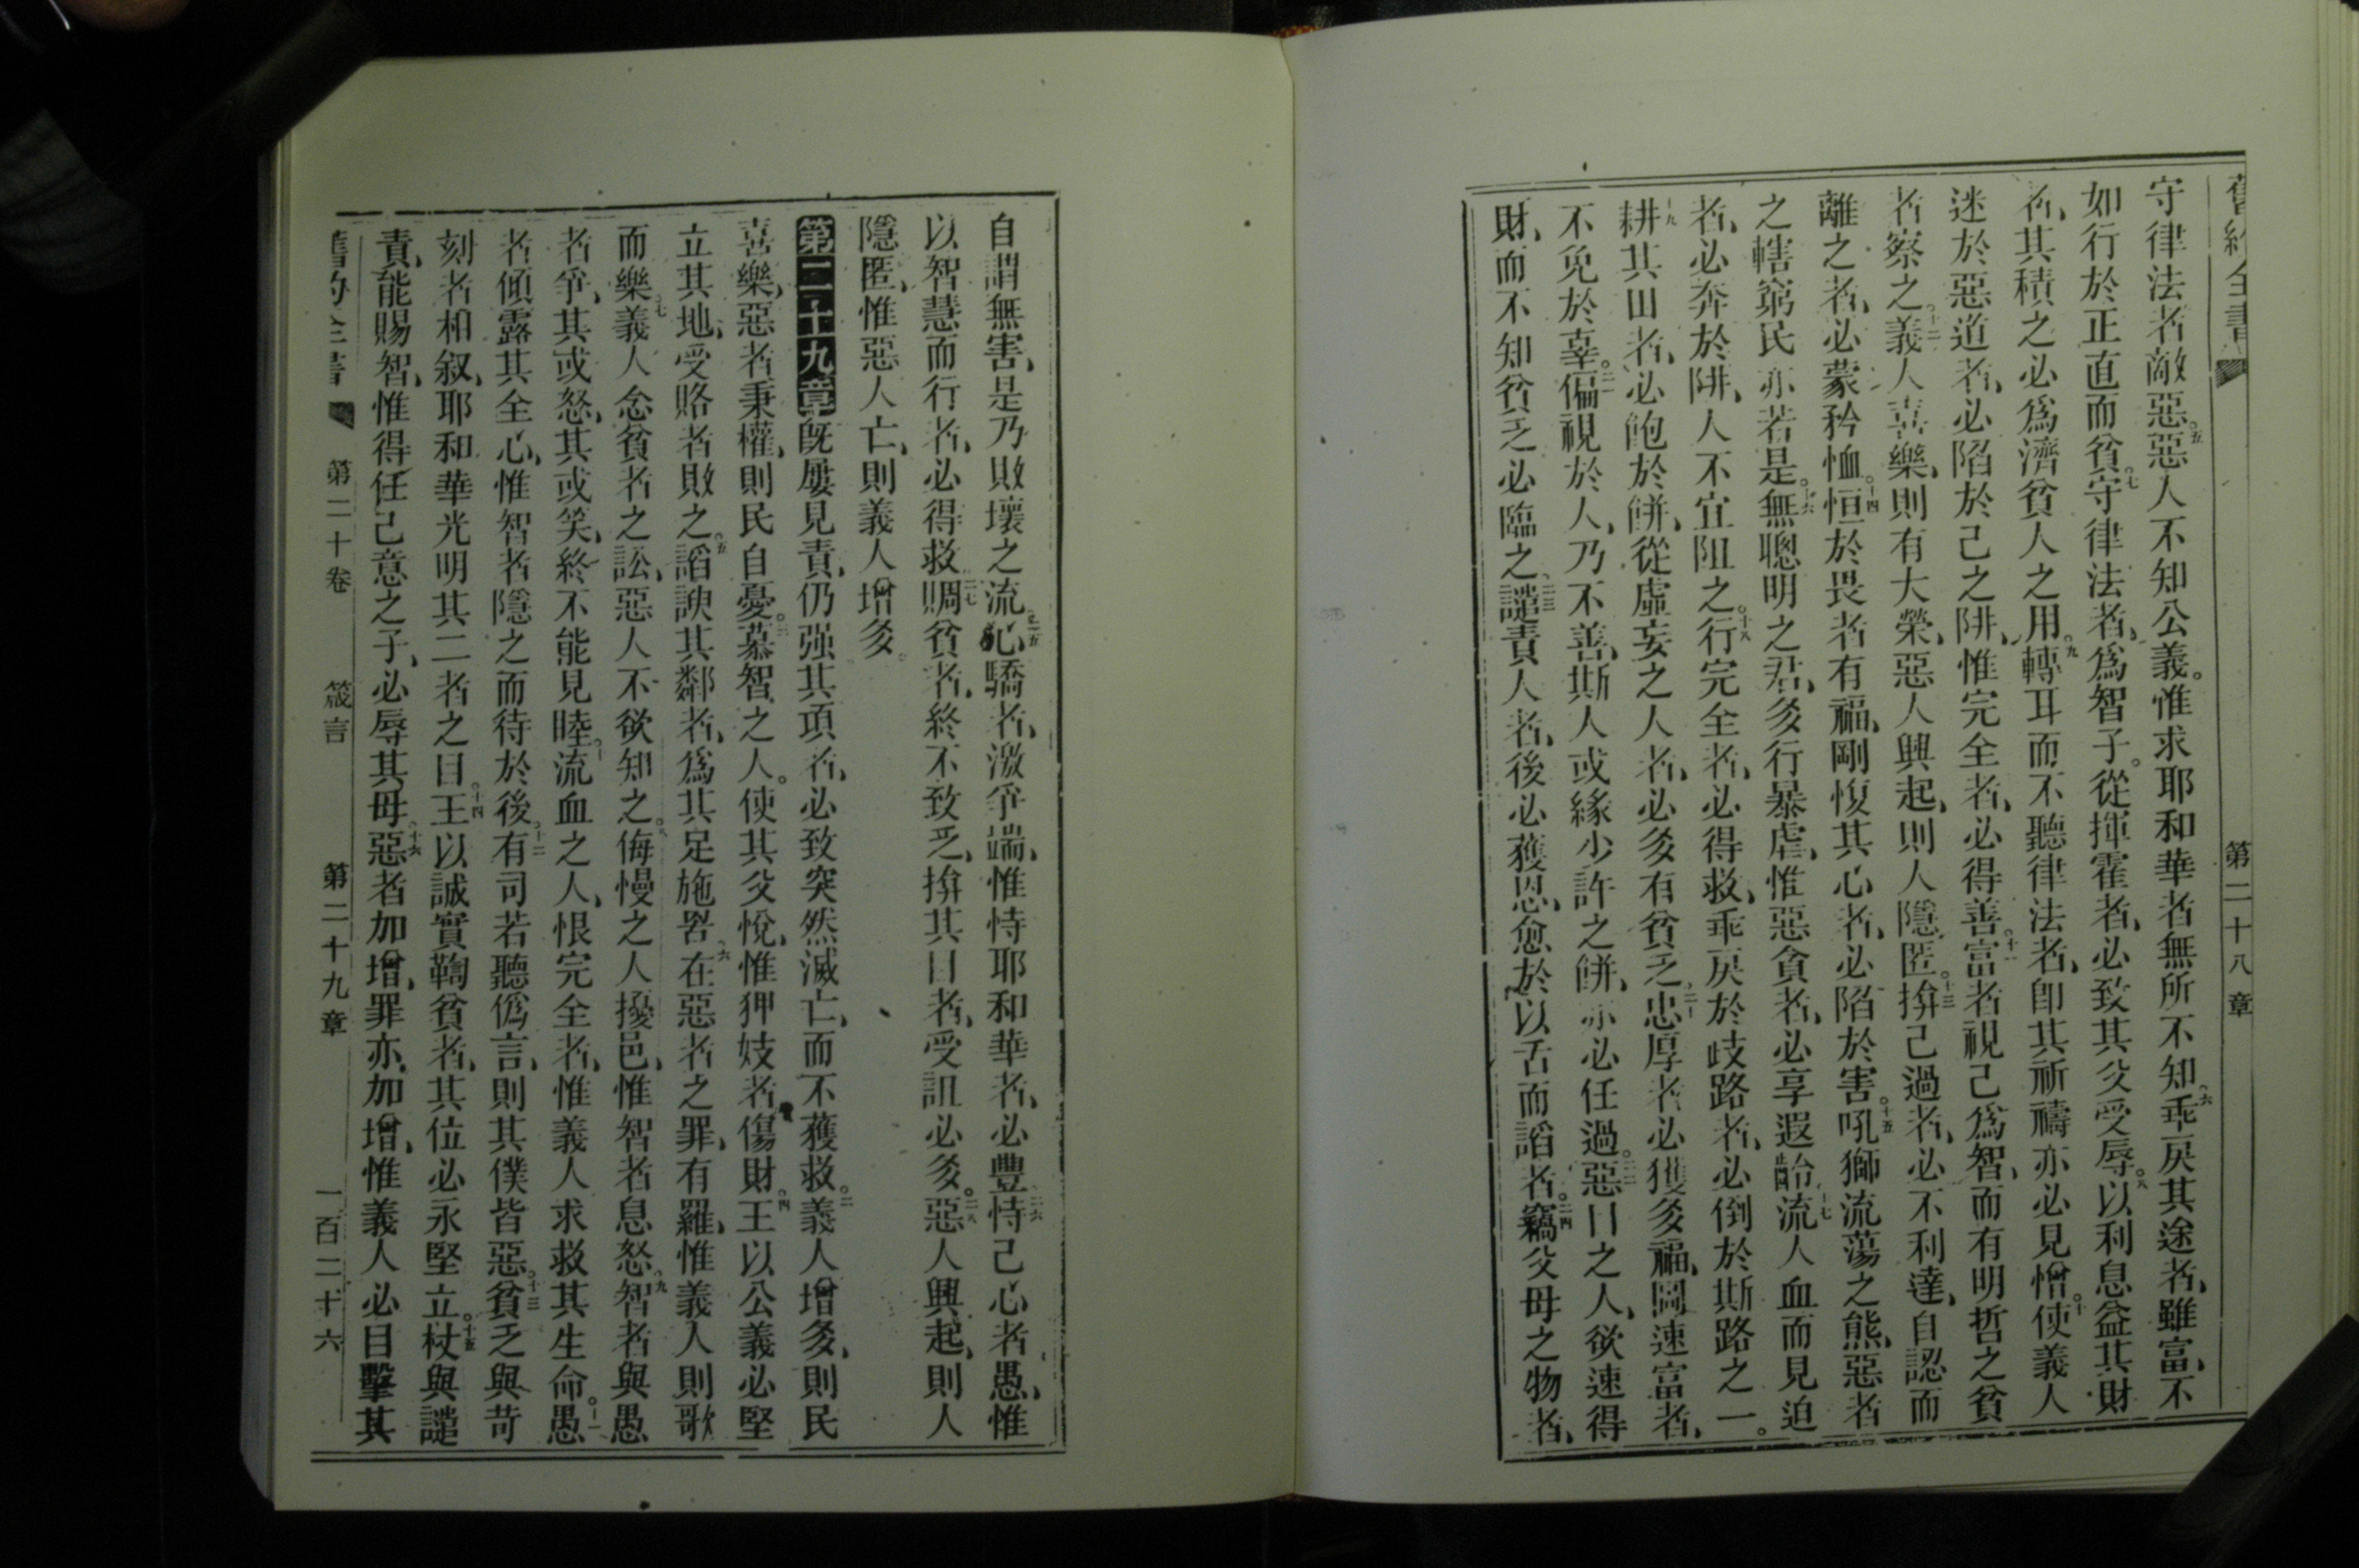 舊約全書 第二十八章
守律法者敵惡。五惡人不知公義。惟求耶和華者無所不知。六乖戾其途者、雖富、不
如行於正直而貧。七守律法者、爲智子。從揮霍者、必致其父受辱。八以利息益其財
者、其積之必爲濟貧人之用。九轉耳而不聽律法者、卽其祈禱亦必見憎。十使義人
迷於惡道者、必陷於己之阱、惟完全者、必得善。十一富者視己爲智、而有明哲之貧
者察之。十二義人喜樂、則有大榮、惡人興起、則人隱匿。十三揜己過者、必不利達、自認而
離之者、必蒙矜恤。十四恒於畏者有福、剛愎其心者、必陷於害。十五吼獅流蕩之熊、惡者
之轄窮民亦若是。十六無聰明之君、多行暴虐、惟惡貪者、必享遐齡。十七流人血而見迫
者、必奔於阱、人不宜阻之。十八行完全者、必得救、乖戾於歧路者、必倒於斯路之一。
十九耕其田者、必飽於餅、從虛妄之人者、必多有貧乏。二十忠厚者必獲多福、圖速富者、
不免於辜。二一偏視於人、乃不善、斯人或緣少許之餅、亦必任過。二二惡目之人、欲速得
財、而不知貧乏必臨之。二三譴責人者、後必獲恩、愈於以舌而諂者。二四竊父母之物者、
自謂無害、是乃敗壞之流。二五心驕者、激爭端、惟恃耶和華者、必豐。二六恃己心者愚、惟
以智慧而行者、必得救。二七賙貧者、終不致乏、揜其目者、受詛必多。二八惡人興起、則人
隱匿、惟惡人亡、則義人增多。
第二十九章旣屢見責、仍强其項者、必致突然滅亡、而不獲救。二義人增多、則民
喜樂、惡者秉權、則民自憂。三慕智之人。使其父悅、惟狎妓者、傷財。四王以公義必堅
立其地、受賂者敗之。五諂諛其鄰者、爲其足施罟。六在惡者之罪、有羅、惟義人則歌
而樂。七義人念貧者之訟、惡人不欲知之。八侮慢之人擾邑、惟智者息怒。九智者與愚
者爭、其或怒、其或笑、終不能見睦。十流血之人、恨完全者、惟義人求救其生命。十一愚
者傾露其全心、惟智者隱之而待於後。十二有司若聽僞言、則其僕皆惡。十三貧乏與苛
刻者相叙、耶和華光明其二者之目。十四王以誠實鞫貧者、其位必永堅立。十五杖與譴
責、能賜智、惟得任己意之子、必辱其母。十六惡者加增、罪亦加增、惟義人必目擊其
舊約全書 第二十卷 箴言 第二十九章 一百二十六